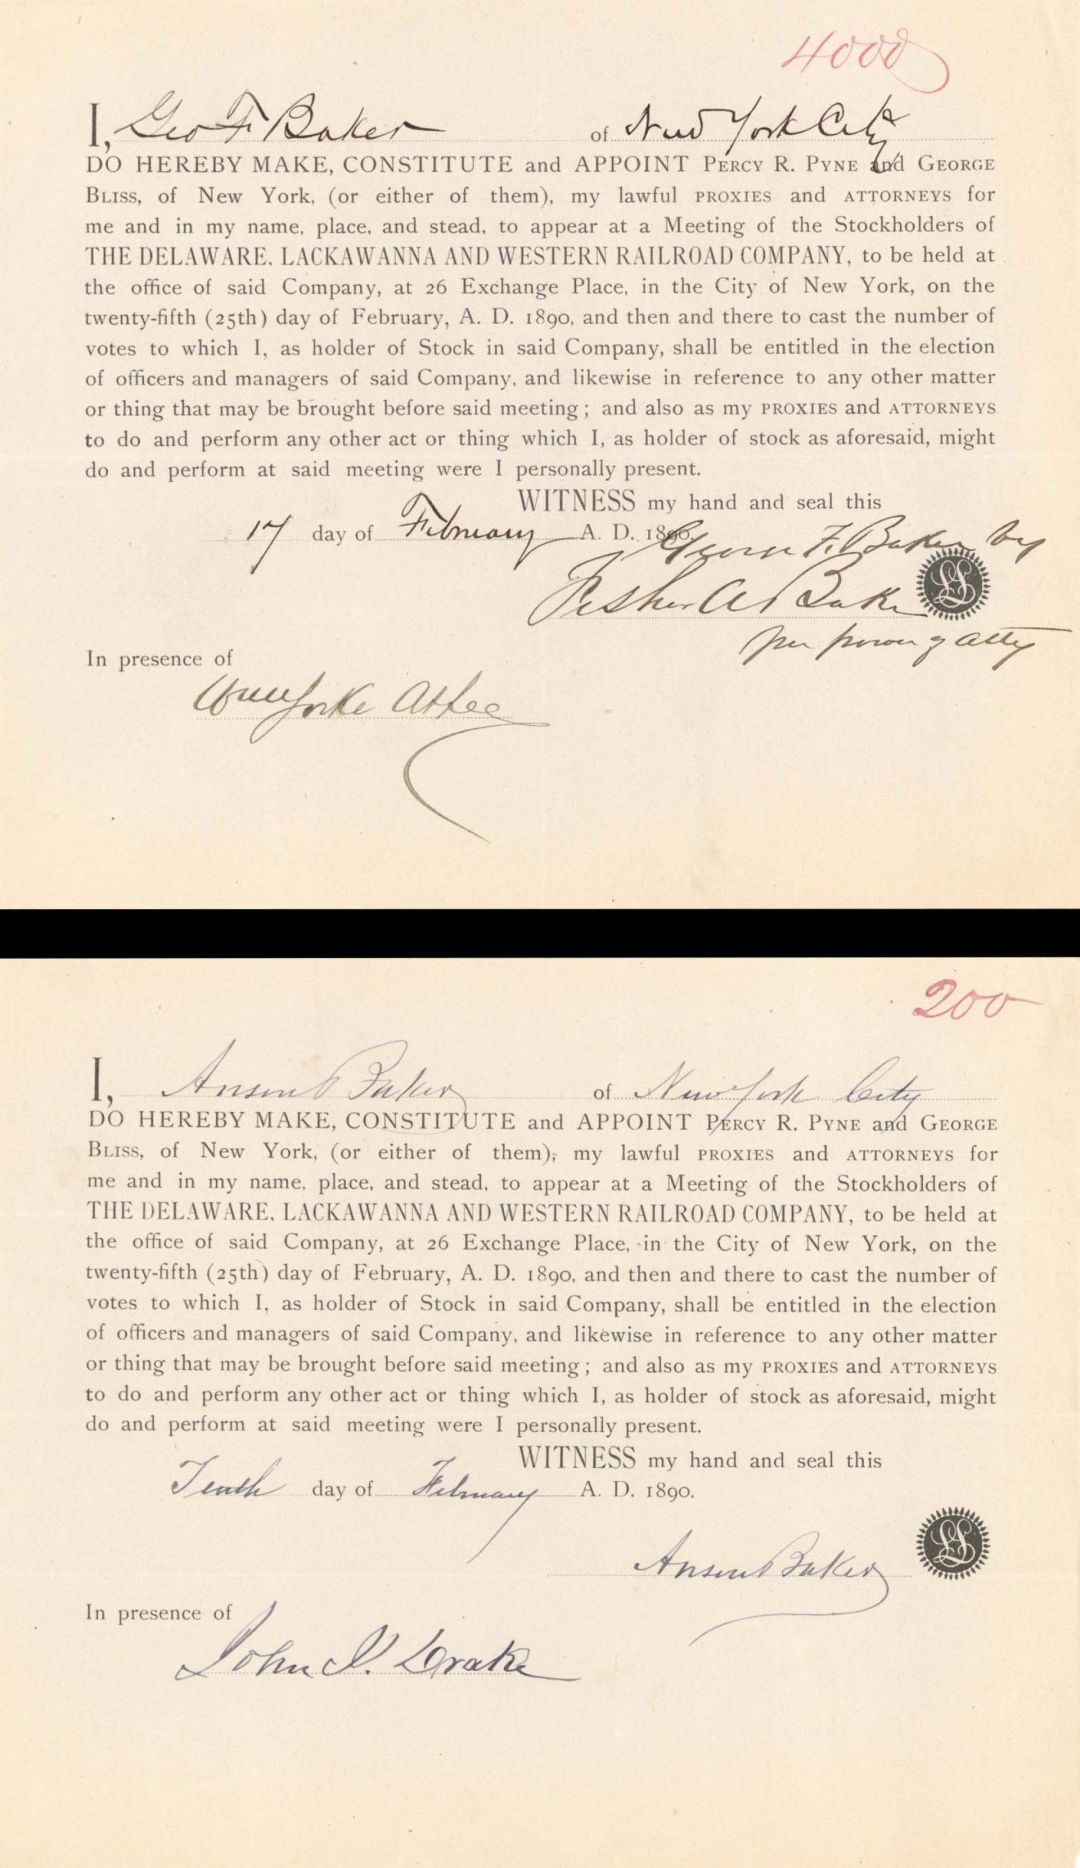 4000
I, Geo F Baker of New York City
DO HEREBY MAKE, CONSTITUTE and APPOINT PERCY R. PYNE and GEORGE
BLISS, of New York, (or either of them), my lawful PROXIES and ATTORNEYS for
me and in my name, place, and stead, to appear at a Meeting of the Stockholders of
THE DELAWARE, LACKAWANNA AND WESTERN RAILROAD COMPANY, to be held at
the office of said Company, at 26 Exchange Place, in the City of New York, on the
twenty-fifth (25th) day of February, A. D. 1890, and then and there to cast the number of
votes to which I, as holder of Stock in said Company, shall be entitled in the election
of officers and managers of said Company, and likewise in reference to any other matter
or thing that may be brought before said meeting; and also as my PROXIES and ATTORNEYS
to do and perform any other act or thing which I, as holder of stock as aforesaid, might
do and perform at said meeting were I personally present.
WITNESS my hand and seal this
17 day of February A. D. 1890.
George F. Baker by
Fisher A Baker
LS
per power of atty
In presence of
200
I, Anson Baker of New York City
DO HEREBY MAKE, CONSTITUTE and APPOINT PERCY R. PYNE and GEORGE
BLISS, of New York, (or either of them), my lawful PROXIES and ATTORNEYS for
me and in my name, place, and stead, to appear at a Meeting of the Stockholders of
THE DELAWARE, LACKAWANNA AND WESTERN RAILROAD COMPANY, to be held at
the office of said Company, at 26 Exchange Place, in the City of New York, on the
twenty-fifth (25th) day of February, A. D. 1890, and then and there to cast the number of
votes to which I, as holder of Stock in said Company, shall be entitled in the election
of officers and managers of said Company, and likewise in reference to any other matter
or thing that may be brought before said meeting; and also as my PROXIES and ATTORNEYS
to do and perform any other act or thing which I, as holder of stock as aforesaid, might
do and perform at said meeting were I personally present.
WITNESS my hand and seal this
Tenth day of February A. D. 1890.
Anson Baker
LS
In presence of
John J. Drake